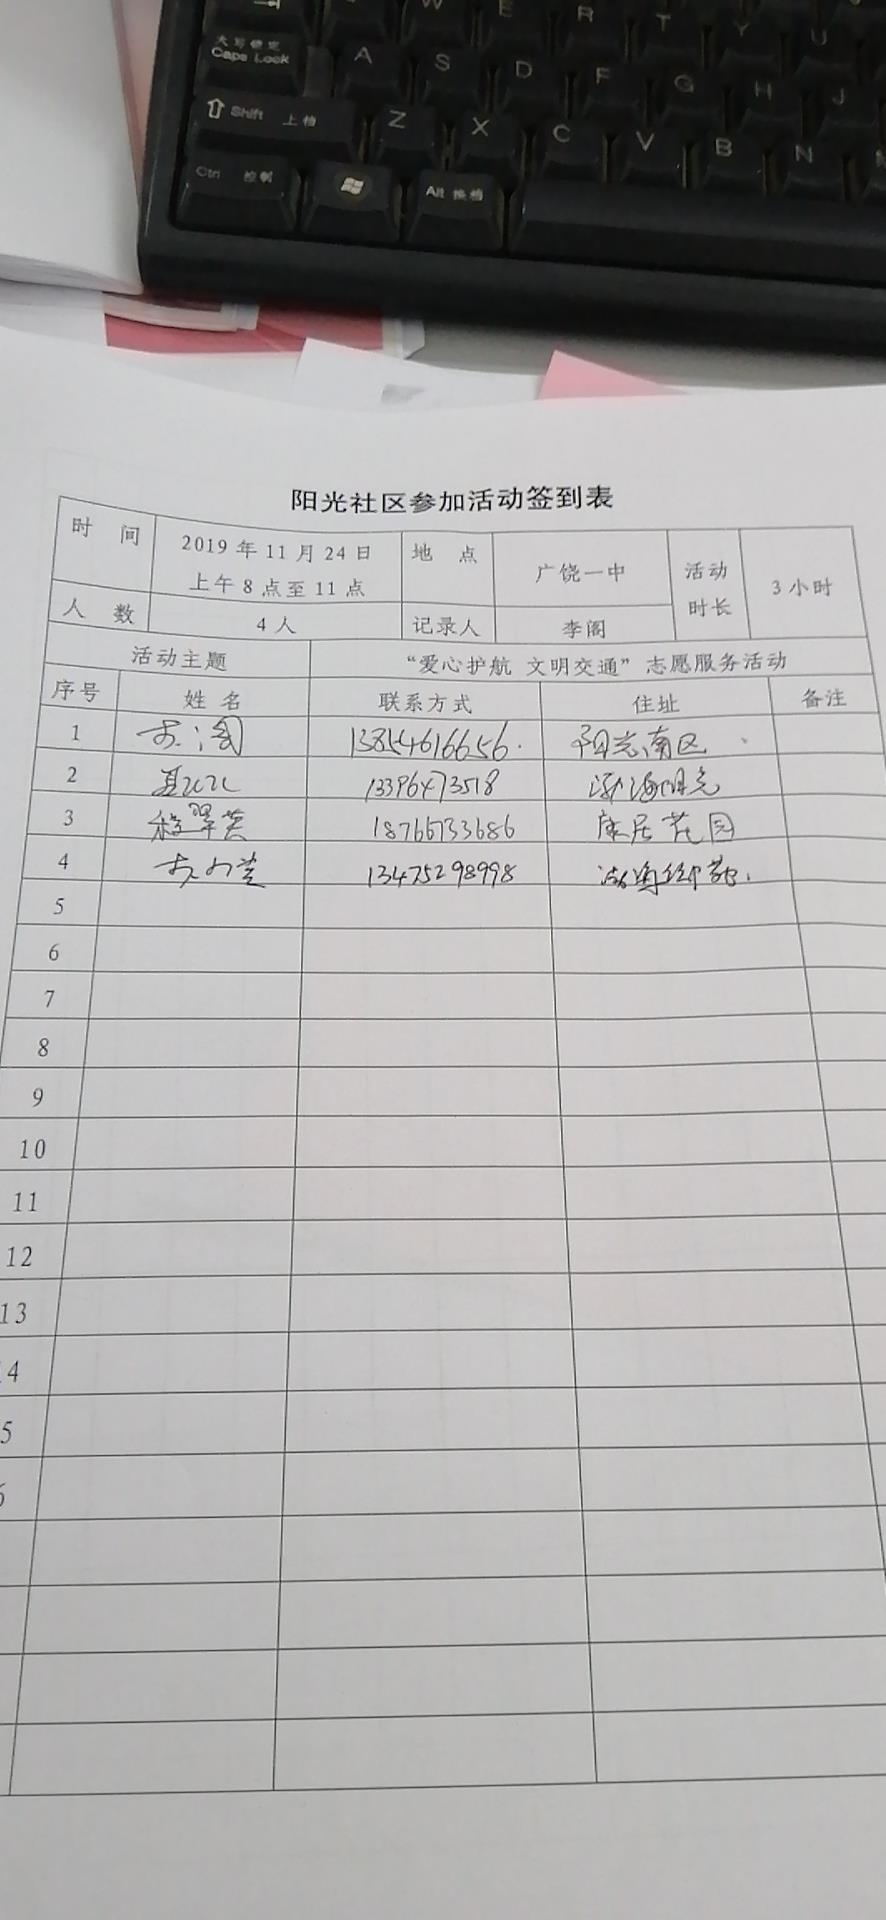 W E R T Y U
大写锁定
Caps Lock A S D F G H J
Shift 上档 Z X C V B N
Ctrl 控制 Alt 换档
阳光社区参加活动签到表
时 间 2019 年 11 月 24 日 上午 8 点至 11 点 地 点 广饶一中 活动时长 3 小时
人 数 4 人 记录人 李阁
活动主题 “爱心护航 文明交通”志愿服务活动
序号 姓 名 联系方式 住址 备注
1 李阁 13854616656 阳光南区
2 13396473518 渤海阳光
3 程翠英 18766733686 康居花园
4 13475298998 渤海
5
6
7
8
9
10
11
12
13
4
5
6